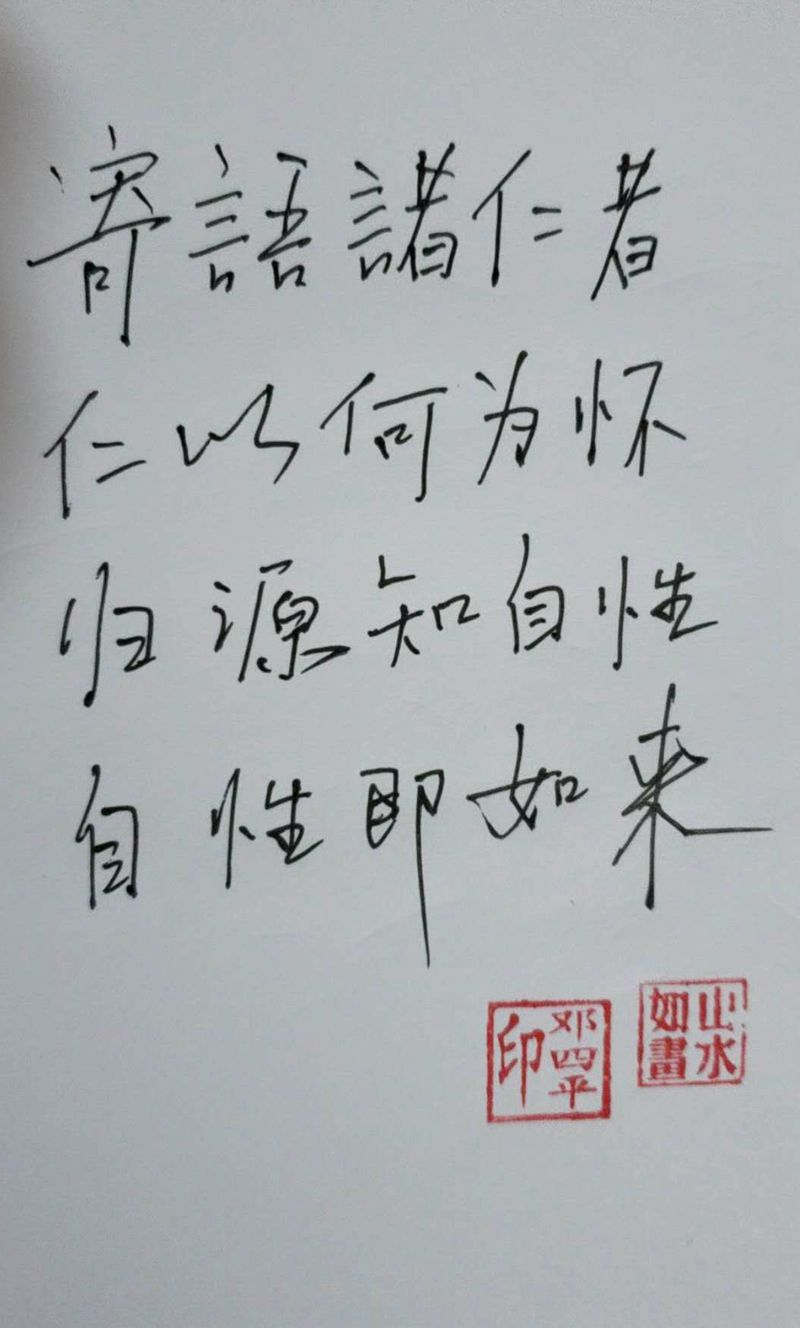 寄語諸仁者
仁以何为怀
归源知自性
自性即如来
邓四平印
山水如畫